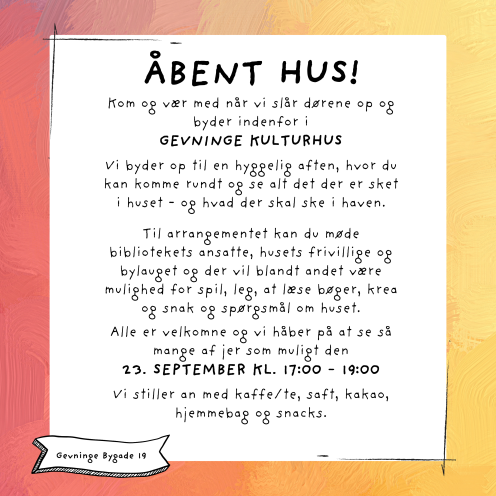 ÅBENT HUS!
Kom og vær med når vi slår dørene op og
byder indenfor i
GEVNINGE KULTURHUS
Vi byder op til en hyggelig aften, hvor du
kan komme rundt og se alt det der er sket
i huset - og hvad der skal ske i haven.
Til arrangementet kan du møde
bibliotekets ansatte, husets frivillige og
bylauget og der vil blandt andet være
mulighed for spil, leg, at læse bøger, krea
og snak og spørgsmål om huset.
Alle er velkomne og vi håber på at se så
mange af jer som muligt den
23. SEPTEMBER KL. 17:00 - 19:00
Vi stiller an med kaffe/te, saft, kakao,
hjemmebag og snacks.
Gevninge Bygade 19